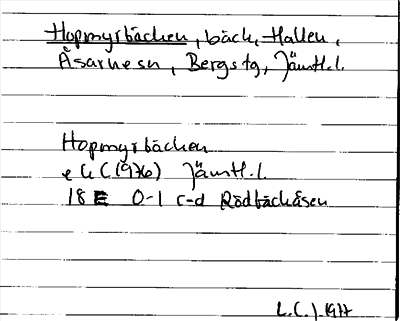 Hopmyrbäcken, bäck, Hallen,
Åsarne sn, Bergs tg, Jämtl.l.
Hopmyrbäcken
ek (1976) Jämtl.l.
18E 0-1 c-d Rödbäckåsen
L.C.J. 1977